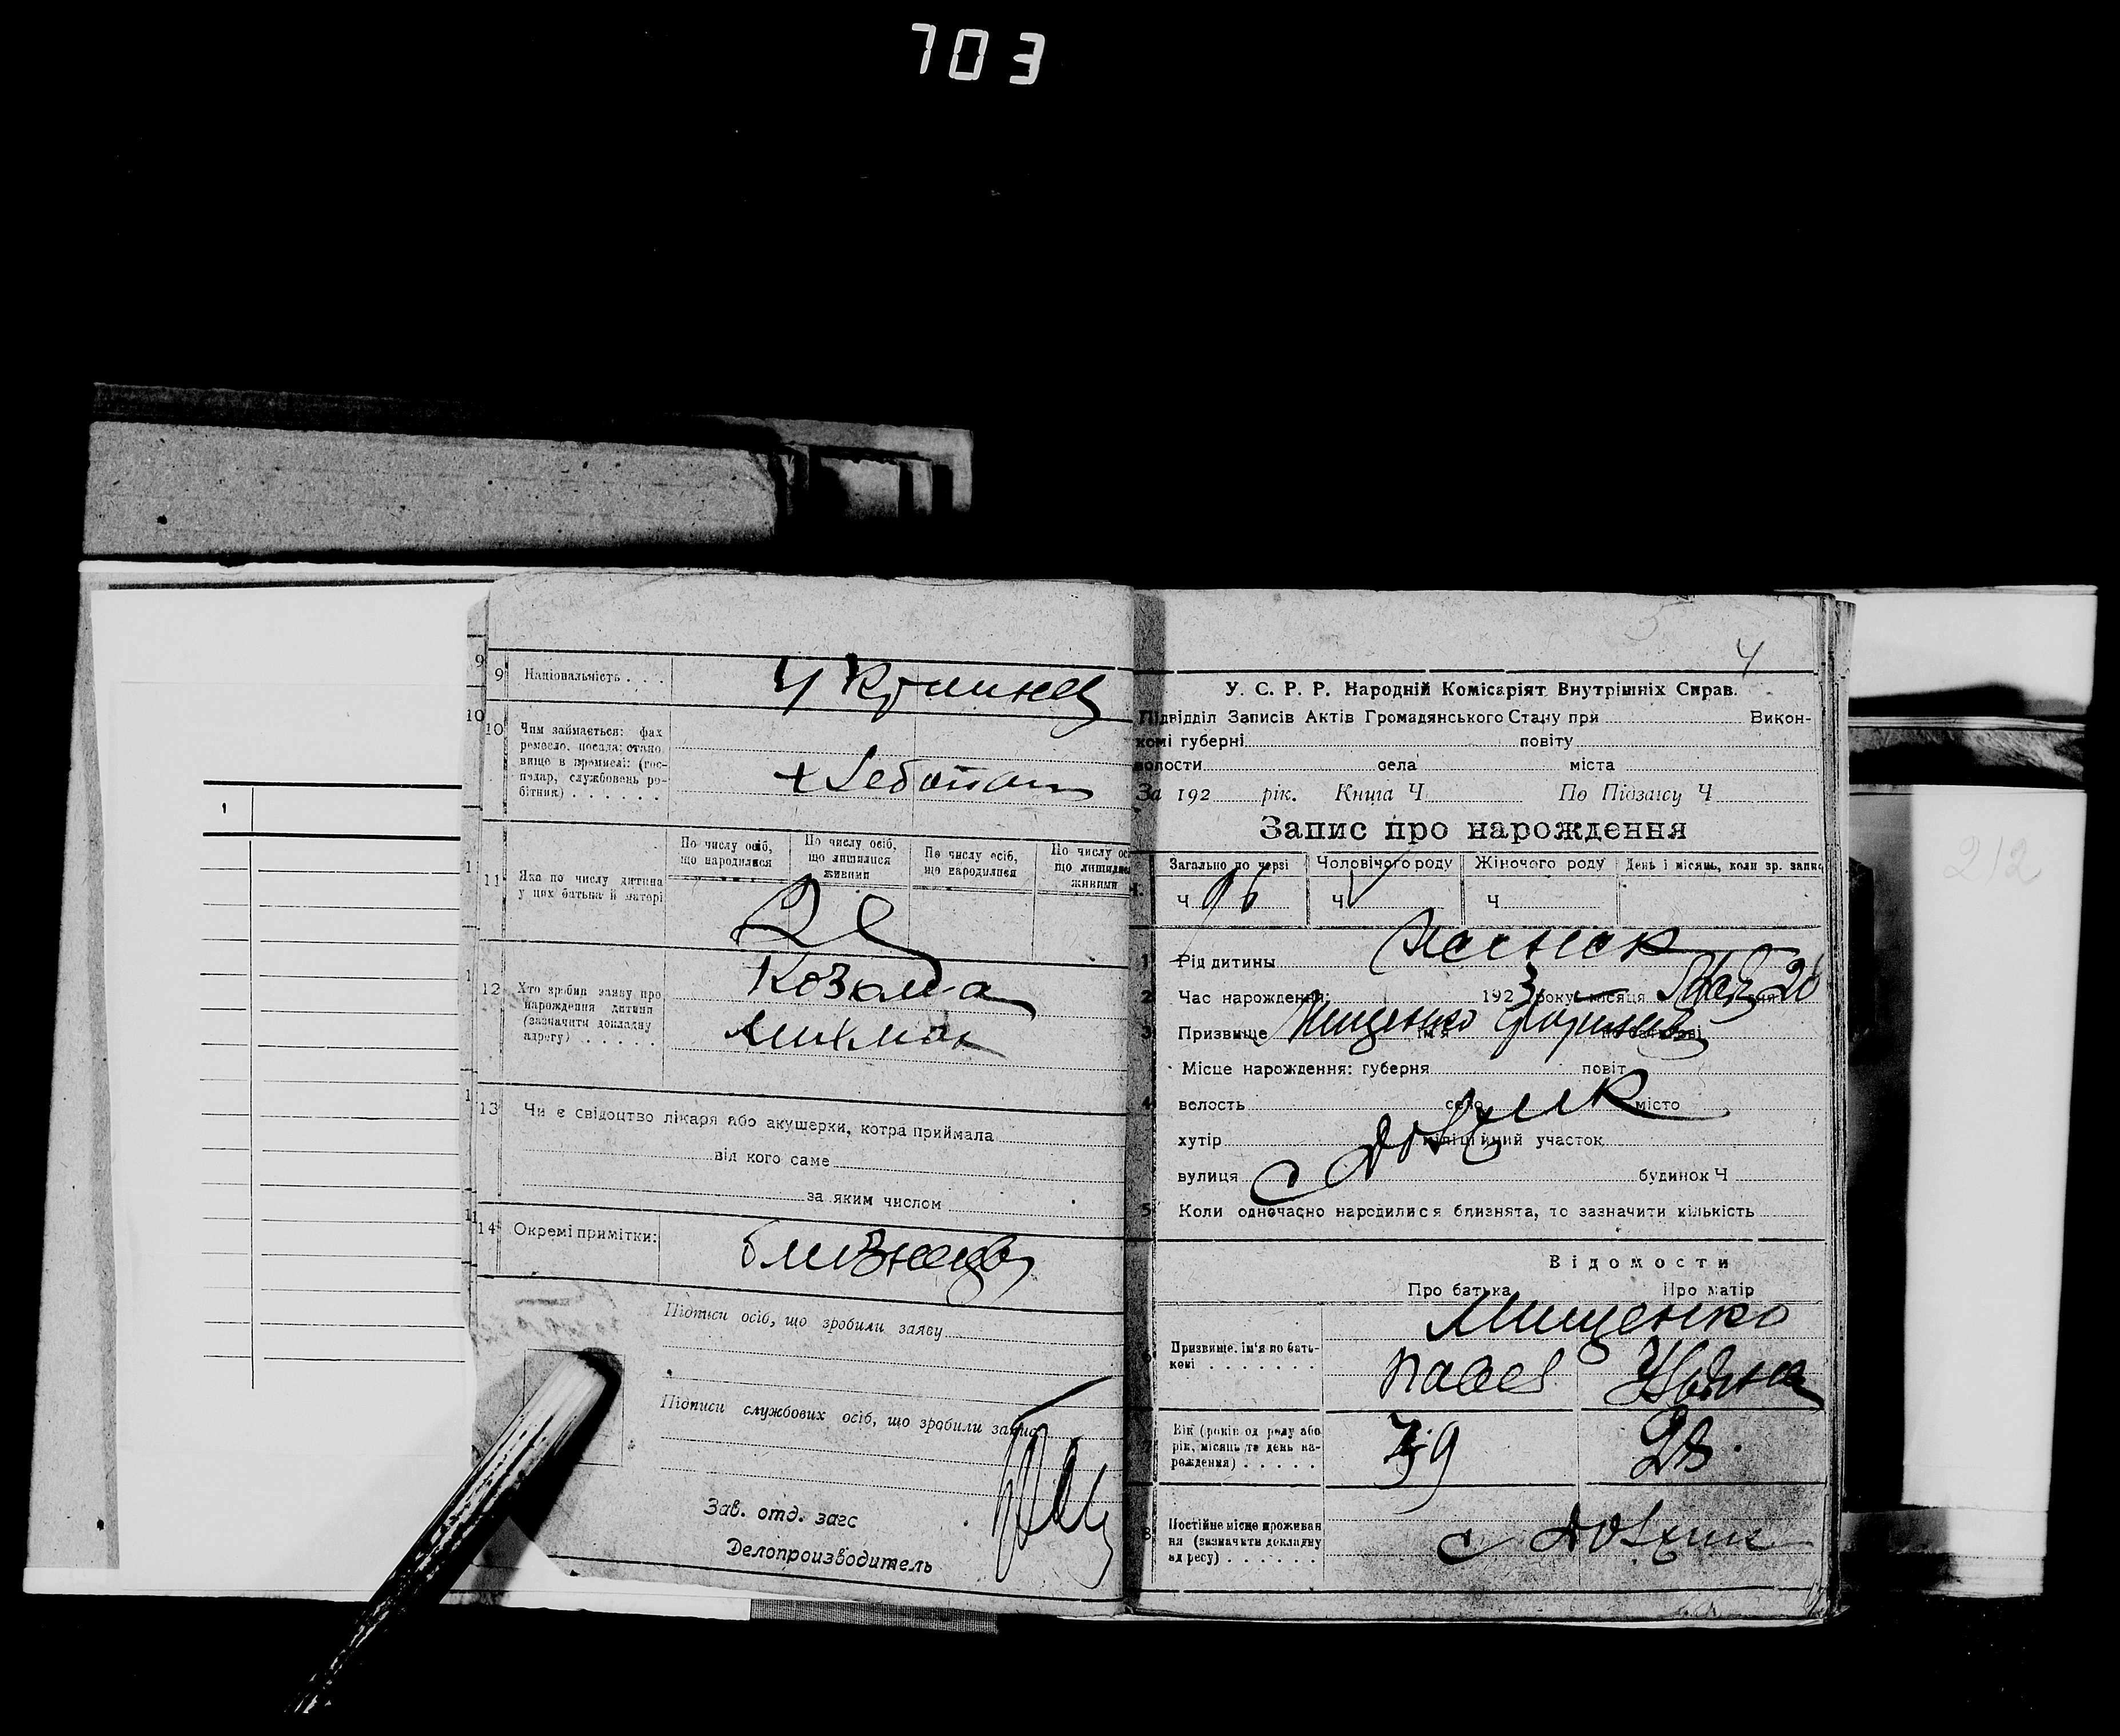 703
9 Національність . . . Украинец
10 Чим займається: фах
ремесло, посада; стано-
вище в промислі: (гос-
подар, службовець ро-
бітник) . . . . . . хлебопаш
По числу осіб, що народилися
По числу осіб, що лишилися живими
По числу осіб, що народилися
По числу ос що лишилис живими
11 Яка по числу дитина
у цих батька й матері 2е
12 Хто зробив заяву про
нарождення дитини
(зазначити докладну
адресу) . . . . .
13 Чи є свідоцтво лікаря або акушерки, котра приймала
від кого саме
за яким числом
14 Окремі примітки: близнецы
Підписи осіб, що зробили заяву
Підписи службових осіб, що зробили запис
Зав. отд. загс
Делопроизводитель
4
У. С. Р. Р. Народній Комісаріят Внутрішніх Справ.
Підвідділ Записів Актів Громадянського Стану при Викон-
комі губерні повіту
волости села міста
За 192 рік. Книга Ч По Підзапису Ч
Запис про нарождення
Загально по черзі Чоловічого роду Жіночого роду День і місяць, коли зр. запис
Ч 96 Ч V Ч
1 Рід дитини
2 Час нарождення: 1923 року місяця 20
3 Призвище Мищенко ім'я по батькові
Місце нарождення: губерня повіт
4 волость село місто
хутір міліційний участок
вулиця с Должик будинок Ч
5 Коли одночасно народилися близнята, то зазначити кількість
Відомости
Про батька Про матір
Мищенко
6 Призвище, ім'я по бать-
кові . . . . . . . Павел
7 Вік (років од роду або
рік, місяць та день на-
рождення) . . . . . 39 28
8 Постійне місце проживан
ня (зазначити докладну
адресу) . . . . . . с Должик
212
1